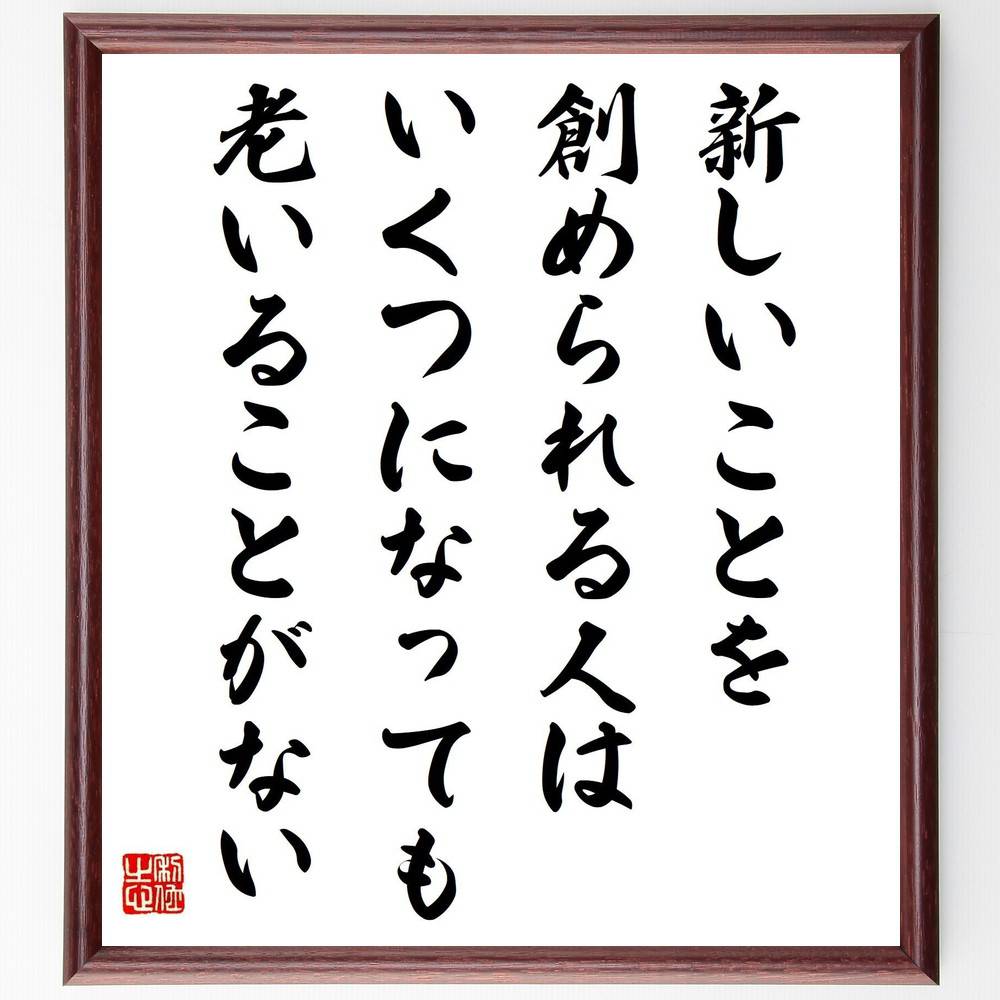 新しいことを
創められる人は
いくつになっても
老いることがない